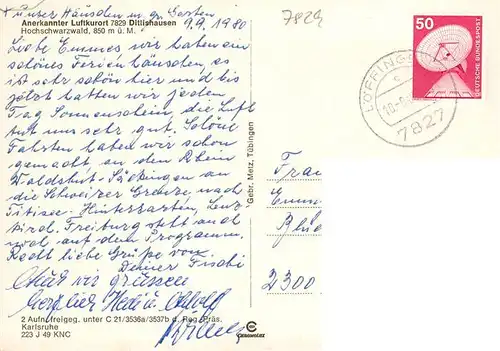 + unser Häuschen m. gr. Garten
Anerkannter Luftkurort 7829 Dittishausen 9.9.1980
Hochschwarzwald, 850 m ü. M.
Liebe Emmes wir haben ein
schönes Ferienhäuschen, es
ist sehr schön hier und bis
jetzt hatten wir jeden
Tag Sonnenschein, die Luft
tut uns sehr gut. Schöne
Fahrten haben wir schon
gemacht an den Rhein
Waldshut-Säckingen an
die Schweizer Grenze nach
Titisee-Hinterzarten, Lenz-
kirch. Freiburg steht auch
noch auf dem Programm.
Recht liebe Grüße von
Deiner Fischi
Auch wir grüssen
herzlich Heidi u. Adolf
2 Aufn. freigeg. unter C 21/3536a/3537b d. Reg. Präs.
Karlsruhe
223 J 49 KNC
Gebr. Metz, Tübingen
7829
50
DEUTSCHE BUNDESPOST
LÖFFINGEN
c
7827
Frau
2300